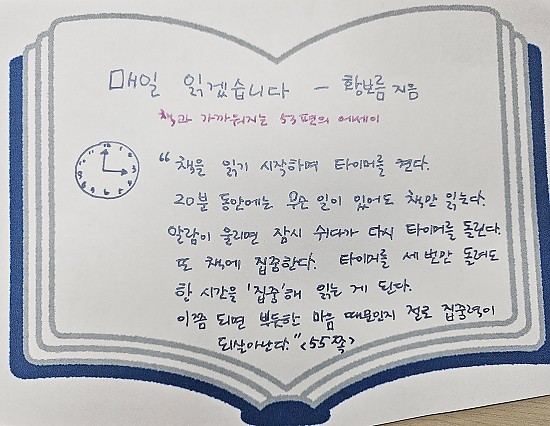 매일 읽겠습니다 - 황보름 지음
책과 가까워지는 53편의 에세이
"책을 읽기 시작하며 타이머를 켠다.
20분 동안에는 무슨 일이 있어도 책만 읽는다.
알람이 울리면 잠시 쉬다가 다시 타이머를 돌린다.
또 책에 집중한다. 타이머를 세 번만 돌려도
한 시간을 '집중'해 읽는 게 된다.
이쯤 되면 뿌듯한 마음 때문인지 절로 집중력이
되살아난다." <55쪽>